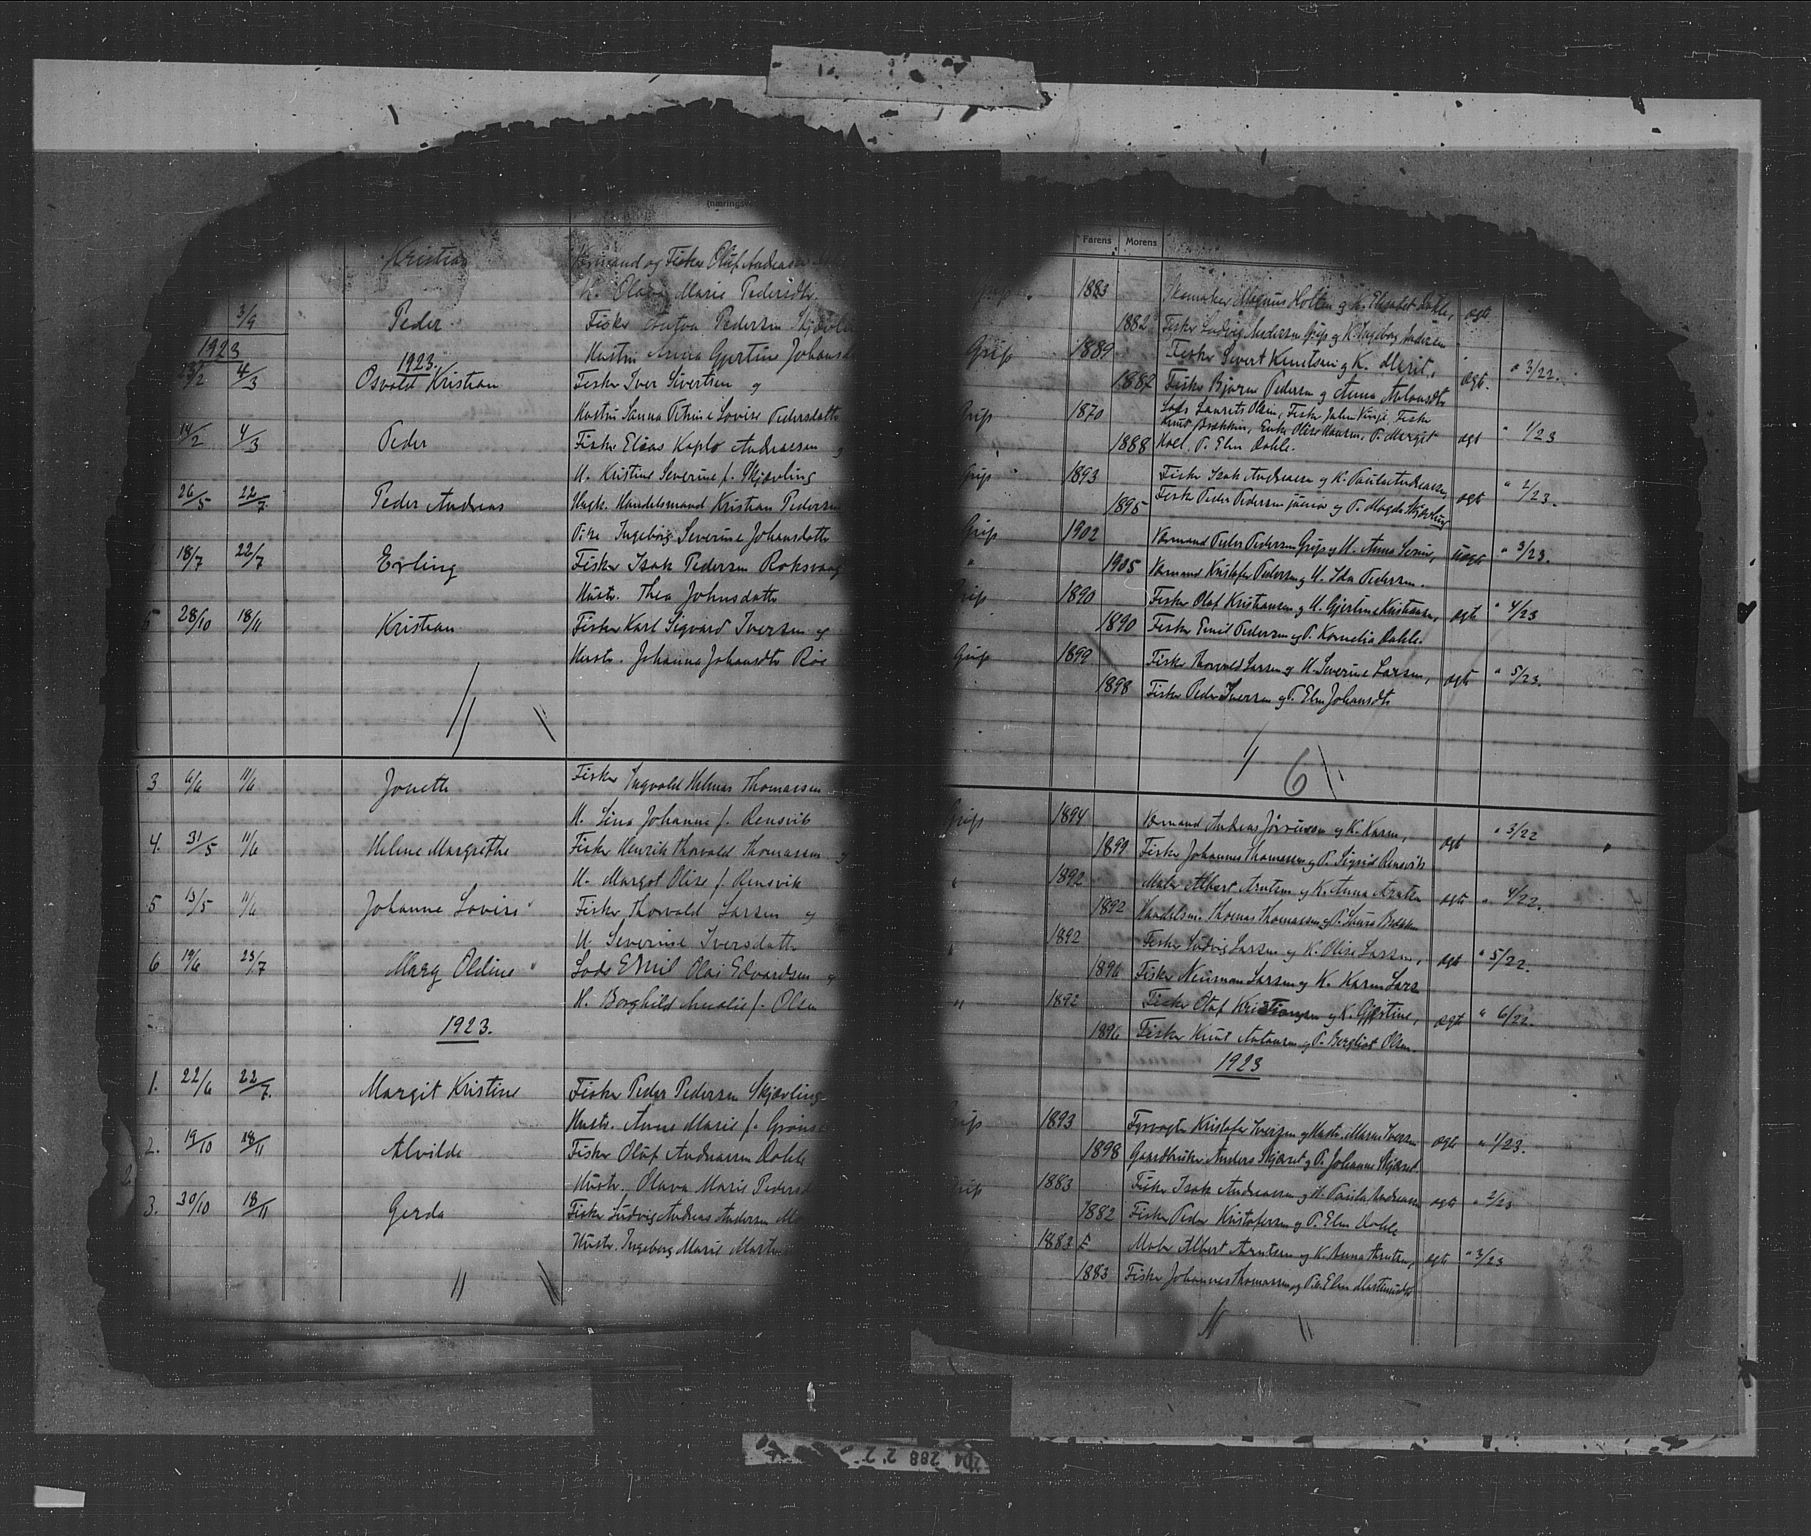 (næringsv
Kristian
Kirmand og Fisker Oluf Andreasen
H. Olava Marie Pedersdtr.
3/9 Peder Fisker Anton Pedersen Skjævli
Hustru Anna Gjertine Johansd
1923
1923.
4/3 Osvald Kristian Fisker Iver Sivertsen og
Hustru Sanna Petrine Lovise Pedersdatter
14/2 4/3 Peder Fisker Elias Kaplo Andreasen og
H. Kristine Severine f. Skjævling
26/5 22/7. Peder Andreas Ungk. Handelsmand Kristian Pedersen
Pike Ingeborg Severine Johansdatter
18/7 22/7 Erling Fisker Isak Pedersen Roksvaag
Hustr. Thea Johnsdatter
5 28/10 18/11 Kristian Fisker Karl Sigvard Iversen og
Hustr. Johanna Johansdtr Røe
3 6/6 11/6 Jonette Fisker Ingvald Helmer Thomassen
H. Lina Johanne f. Rensvik
4. 31/5 11/6 Helene Margrethe Fisker Henrik Thorvald Thomassen og
H. Margot Olise f. Rensvik
5 13/5 11/6 Johanne Lovise Fisker Thorvald Larsen og
H. Severine Iversdatter
6 19/6 23/7 Marg Oldine Lods Emil Olai Edvardsen og
H. Borghild Amalie f. Olsen
1923.
1. 22/6 22/7. Margit Kristine Fisker Peder Pedersen Skjævling
Hustr. Anne Marie f. Grønse
2. 19/10 18/11 Alvilde Fisker Oluf Andreasen Dahle
Hustr. Olava Marie Pedersd
3. 30/10 18/11 Gerda Fisker Ludvig Andreas Andersen
Hustr. Ingeborg Marie Mart
Farens Morens
1883 Skomaker Magnus Holten og K. Elisabet Dahle, ægte
1882 Fisker Ludvig Andersen Grip og K. Ingeborg Andersen
Grip 1889 Fisker Sivert Knutsen og K. Merit, ægt. " 3/22.
1887 Fisker Bjarne Pedersen og Anna
Grip 1870 Lods Laurits Olsen, Fisker John Fisker
Knut Brekken, Enke Olise Hansen, P. Margit ægt " 1/23
1888 P. Elen Dahle.
Grip 1893 Fisker Isak Andreasen og K. Paula Andreasen, ægt " 2/23.
1895 Fisker Peder Pedersen junior og P. Magda Skjævling
Grip 1902 Kirmand Peder Pedersen Grip og H. Anna Serine, uægte " 3/23.
" 1905 Kirmand Kristofer Pedersen og H. Ida Pedersen.
Grip 1890 Fisker Olaf Kristiansen og H. Gjertine Kristiansen, ægte " 4/23
1890 Fisker Emil Pedersen og P. Kornelia Dahle.
Grip 1899 Fisker Thorvald Larsen og H. Severine Larsen, ægte " 5/23.
1898 Fisker Peder Iversen og P. Elen Johansdtr
6
Grip 1894 Kirmand Andreas Jørensen og K. Karen, ægt " 3/22
1899 Fisker Johannes Thomassen og P. Sigrid Rensvik
" 1892 Maler Albert Arntsen og K. Anna Arntsen ægte " 4/22.
1892 Handelsm. Thomas Thomassen og P. Brekken
" 1892 Fisker Ludvig Larsen og K. Olise Larsen, ægt " 5/22.
1896 Fisker Neumann Larsen og K. Karen Lars
" 1892 Fisker Olaf Kristiansen og K. Gjertine, ægt " 6/22.
1896 Fisker Knut Antonsen og P. Bergliot Olsen.
1923
Grip 1893 Fyrvogter Kristofer Iversen og Hustr. Marie Iversen ægte " 1/23.
1898 Gaardbruker Anders Skjæret og P. Johanne Skjæret
Grip 1883 Fisker Isak Andreasen og H. Paula Andreasen ægte " 2/23
1882 Fisker Peder Kristofersen og P. Elen Dahle
1883 Maler Albert Arntsen og K. Anna Arntsen, ægte " 3/23
1883 Fisker Johannes Thomassen og Elen Martinusdtr
288 2'2